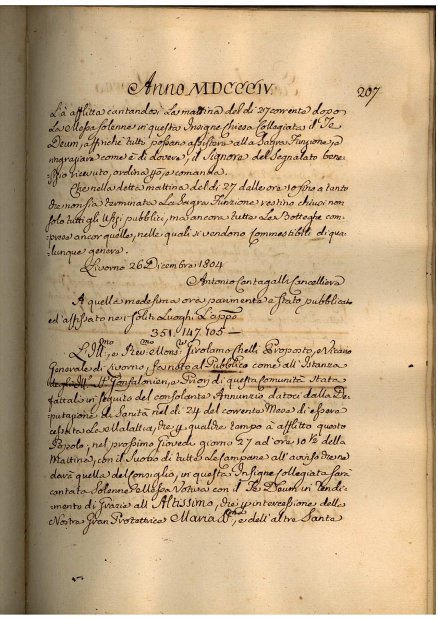 Anno MDCCCIV. 207
Là afflitta cantandosi la mattina del dì 27 corrente dopo
la Messa Solenne in questa Insigne Chiesa Collegiata il Te
Deum, affinchè tutti possano assistere alla Sagra Funzione, e
ringraziare come è di dovere, il Signore del Segnalato bene-
fizio ricevuto, ordina e comanda.
Che nella detta mattina del dì 27 dalle ore 10 fino a tanto
che non sia terminata la Sagra Funzione restino chiusi non
solo tutti gli Ufizi pubblici, ma ancora tutte le Botteghe com-
prese ancor quelle, nelle quali si vendono Commestibili di qua-
lunque genere.
Livorno 26 Dicembre 1804
Antonio Contagalli Cancelliere
A quella medesima ora parimente è stato pubblicato
ed affissato nei soliti Luoghi
351. 147. 105 —
L'Ill.mo, e Rev.mo Mons.re Girolamo Chelli Proposto, e Vicario
Generale di Livorno fa noto al Pubblico come all'Istanza
Gonfaloniere, e Priori di questa Comunità Stata
fattali in seguito del consolante Annunzio datoci dalla De-
putazione di Sanità nel dì 24 del corrente Mese di essere
cessata la Malattia, che per qualche tempo à afflitto questo
Popolo, nel prossimo Giovedì giorno 27 ad ore 10½ della
Mattina, con il Suono di tutte le Campane all'avviso che ne
darà quella del Consiglio, in questa Insigne Collegiata sarà
cantata Solenne Messa Votiva con il Te Deum in Rendi-
mento di Grazie all'Altissimo, che per intercessione della
Nostra Gran Protettrice Maria SS.ma, e dell'altre Sante